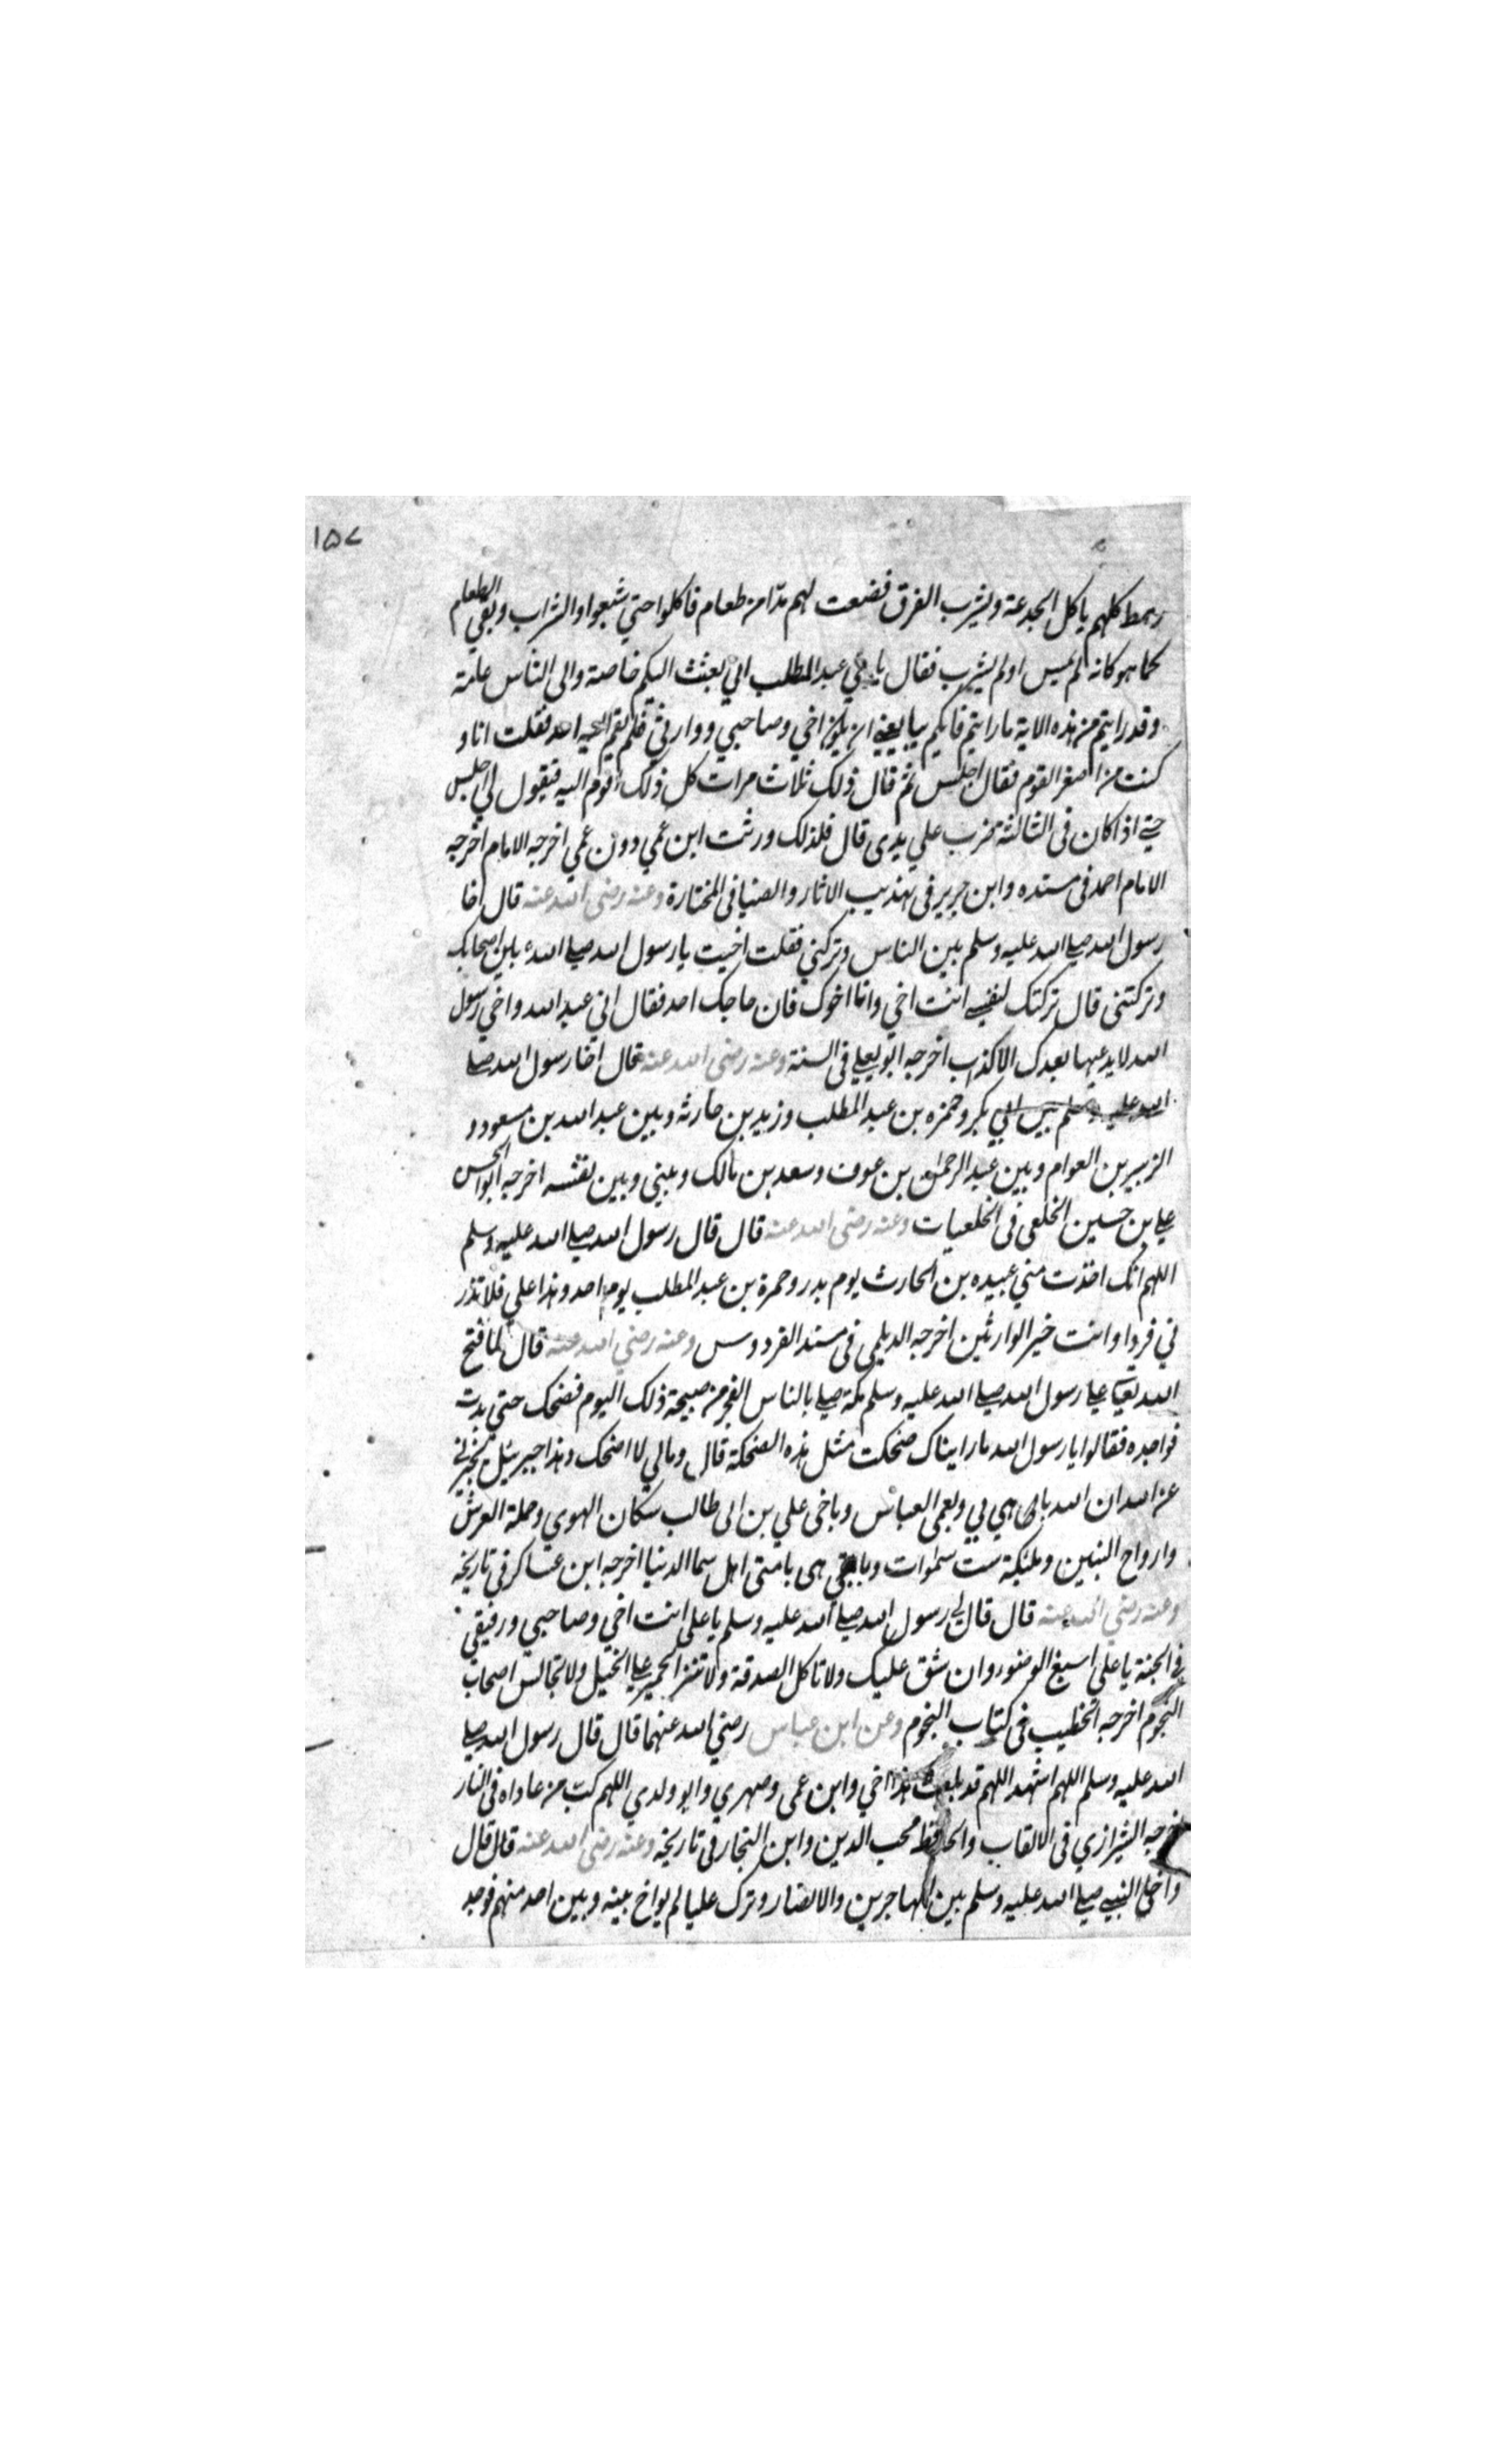 ١٥٧
رهط كلهم ياكل الجدعة ويشرب الفرق فضعت لهم مدّا من طعام فاكلوا حتي شبعوا والشراب وبقي الطعام
كما هو كانه لم يمس اولم يشرب فقال يا بني عبد المطلب اني بعثت اليكم خاصة والى الناس عامة
وقد رايتم من هذه الاية ما رايتم فايكم يبايعني ان يكون اخي وصاحبي ووارثي فلم يقم اليه احد فقلت انا و
كنت من اصغر القوم فقال اجلس ثم قال ذلك ثلاث مرات كل ذلك اقوم اليه فيقول لي اجلس
حتي اذا كان فى الثالثة ضرب علي يدى قال فلذلك ورثت ابن عمي دون عمي اخرجه الامام اخرجه
الامام احمد فى مسنده وابن جرير فى تهذيب الاثار والضيا فى المختارة وعنه رضى الله عنه قال اخا
رسول الله صلي الله عليه وسلم بين الناس وتركني فقلت اخيت يا رسول الله صلي الله بين اصحابك
وتركتنى قال تركتك لنفسي انت اخي وانا اخوك فان حاجك احد فقال اني عبد الله واخي رسول
الله لا يدعيها بعدك الا كذاب اخرجه ابو يعلي فى السنة وعنه رضى الله عنه قال اخا رسول الله صلي
الله عليه وسلم بين ابي بكر وحمزه بن عبد المطلب وزيد بن حارثه وبين عبد الله بن مسعود و
الزبير بن العوام وبين عبد الرحمن بن عوف وسعد بن مالك وبيني وبين نفسه اخرجه ابو الحسن
علي بن حسين الخلعي فى الخلعيات وعنه رضى الله عنه قال قال رسول الله صلي الله عليه وسلم
اللهم انك اخذت مني عبيده بن الحارث يوم بدر وحمزة بن عبد المطلب يوم احد وهذا علي فلا تذر
ني فردا وانت خير الوارثين اخرجه الديلمي فى مسند الفردوس وعنه رضي الله عنه قال لما فتح
الله تعالى علي رسول الله صلي الله عليه وسلم مكة صلي بالناس الفجر من صبيحة ذلك اليوم فضحك حتى بدت
نواجده فقالوا يا رسول الله ما رايناك ضحكت مثل هذه الضحكة قال ومالي لا اضحك وهذا جبرئيل يخبرني
عن الله ان الله باهى بي وبعمى العباس وباخى علي بن ابى طالب سكان الهوي وحملة العرش
وارواح النبيين وملئكة ست سموات وباهى بامتى اهل سما الدنيا اخرجه ابن عساكر فى تاريخه
وعنه رضي الله عنه قال قال لي رسول الله صلي الله عليه وسلم يا على انت اخي وصاحبي ورفيقي
فى الجنة يا على اسبغ الوضوء وان شق عليك ولا تاكل الصدقة ولا تنز الحمير علي الخيل ولا تجالس اصحاب
النجوم اخرجه الخطيب فى كتاب النجوم وعن ابن عباس رضي الله عنهما قال قال رسول الله صلي
الله عليه وسلم اللهم اشهد اللهم قد بلغت هذا اخي وابن عمى وصهري وابو ولدي اللهم كب من عاداه فى النار
اخرجه الشيرازي فى الالقاب والحافظ محب الدين وابن النجار فى تاريخه وعنه رضى الله عنه قال قال
واخى النبي صلي الله عليه وسلم بين المهاجرين والانصار وترك عليا لم يواخ بينه وبين احد منهم فوجد